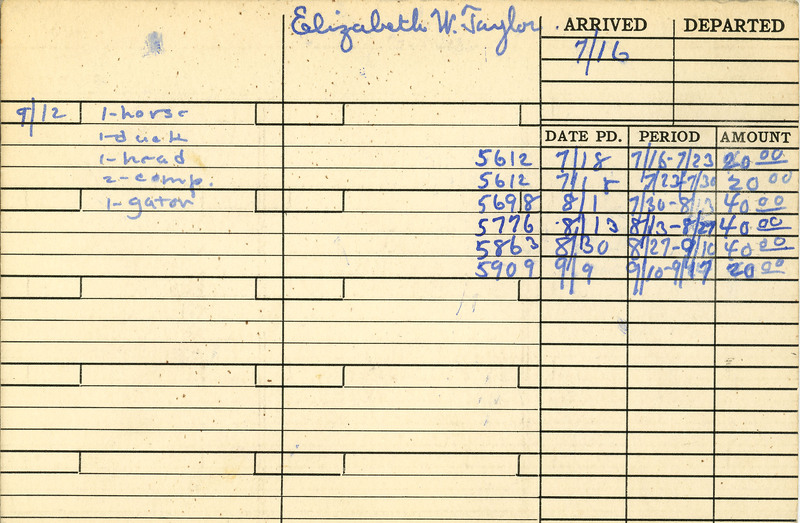 Elizabeth W. Taylor
ARRIVED DEPARTED
7/16
9/12 1-horse
1-duck
1-head
2-comp.
1-gator
DATE PD. PERIOD AMOUNT
5612 7/18 7/16-7/23 20 00
5612 7/18 7/23-7/30 20 00
5698 8/1 7/30-8/13 40 00
5776 8/13 8/13-8/27 40 00
5863 8/30 8/27-9/10 40 00
5909 9/9 9/10-9/17 20 00